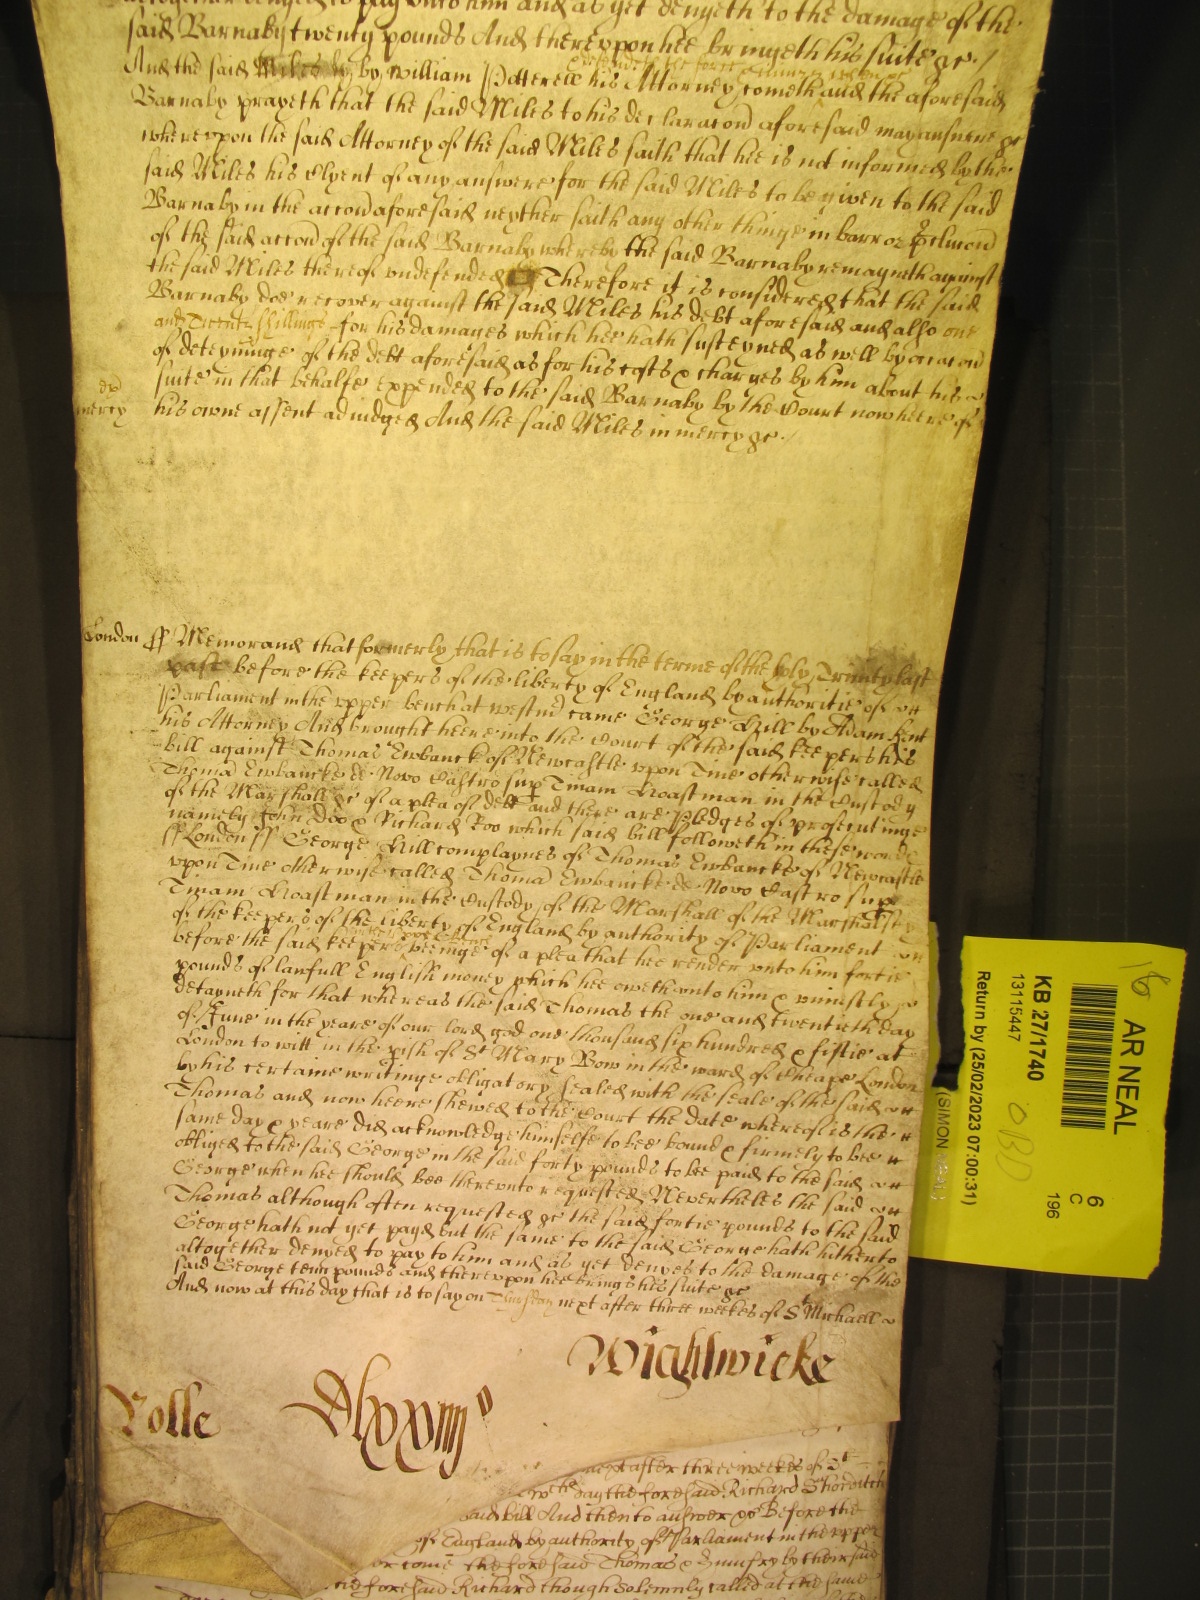 altogether denyed to pay unto him and as yet denyeth to the damage of the
said Barnaby twenty pounds And thereupon hee bringeth his suite &c /
defendeth the force & iniury when &c
And the said Miles by William Potterell his Attorney cometh and the aforesaid
Barnaby prayeth that the said Miles to his declaracon aforesaid may answere &c
whereupon the said Attorney of the said Miles saith that hee is not informed by the
said Miles his Clyent of any answere for the said Miles to be given to the said
Barnaby in the accon aforesaid neyther saith any other thinge in barr or
of the said accon of the said Barnaby whereby the said Barnaby remayneth against
the said Miles thereof undefended Therefore it is considered that the said
Barnaby doe recover against the said Miles his debt aforesaid and also one
and Twenty shillings for his damages which hee hath susteyned as well by occacon
of deteyninge of the debt aforesaid as for his costs & charges by him about his
suite in that behalfe expended to the said Barnaby by the Court now heere of
mercy his owne assent adiudged And the said Miles in mercy &c /
London ss Memorand that formerly that is to say in the terme of the holy Trinity last
past before the keepers of the liberty of England by authoritie of
Parliament in the upper bench at westm came George Hill by Adam Kent
his Attorney And brought heere into the Court of the said keepers his
bill against Thomas Ewbancke of Newcastle upon Tine otherwise called
Thoma Ewbancke de Novo Castro sup Tinam Hoastman in the Custody
of the Marshall &c of a plea of debt and there are pledges of prosecutinge
namely John Doo & Richard Roo which said bill followeth in these words
ss London ss George Hill complaynes of Thomas Ewbancke of Newcastle
upon Tine otherwise called Thoma Ewbancke de Novo Castro sup
Tinam Hoastman in the Custody of the Marshall of the Marshalsey
of the keepers of the liberty of England by authority of Parliament
before the said keepers beeinge of a plea that hee render unto him fortie
pounds of lawfull English money which hee oweth unto him & uniustly
detayneth for that whereas the said Thomas the one and twentieth day
of June in the yeare of our lord god one thousand six hundred & fiftie at
London to witt in the pish of St Mary Bow in the ward of Cheape London
by his certaine writinge obligatory sealed with the seale of the said
Thomas and now heere shewed to the Court the date whereof is the
same day & yeare did acknowledge himselfe to bee bound & firmely to bee
obliged to the said George in the said forty pounds to bee paid to the said
George when hee should bee thereunto requested Nevertheles the said
Thomas although often requested &c the said fortie pounds to the said
George hath not yet payd but the same to the said George hath hitherto
altogether denyed to pay to him and as yet denyes to the damage of the
said George tenn pounds and thereupon hee brings his suite &c
And now at this day that is to say on Thursday next after three weekes of St Michaell
Wightwicke
Rolle
next after three weekes of St
day the foresaid Richard
said bill And then to answer &c Before the
of England by authority of Parliament in the upper
come the foresaid Thomas & Humfry by their said
the foresaid Richard though solemnly called at the same
16
AR NEAL
6
C
196
KB 27/1740
13115447
Return by (25/02/2023 07:00:31)
(SIMON NEAL)